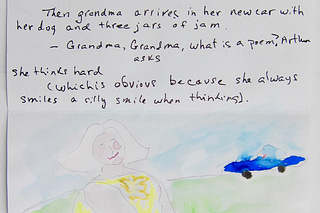 Then grandma arrives in her new car with
her dog and three jars of jam.
– Grandma, Grandma, what is a poem? Arthur
asks
she thinks hard
(which is obvious because she always
smiles a silly smile when thinking).